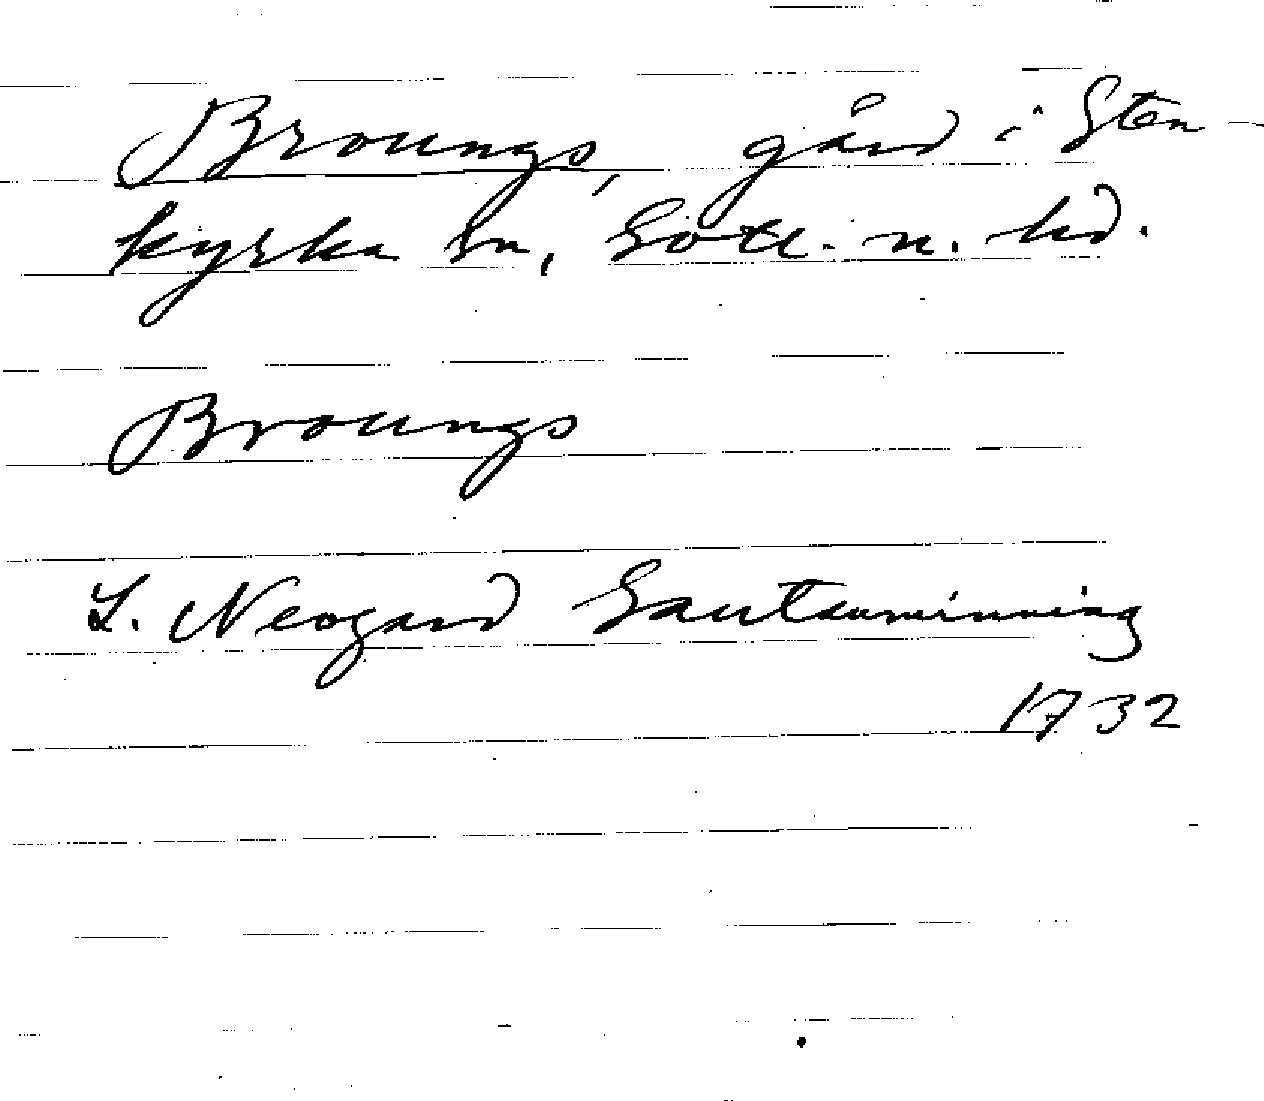 Broungs, gård i Sten-
kyrka sn, Gotl. n. hd.
Broungs
L. Neogard Gautauminning
1732